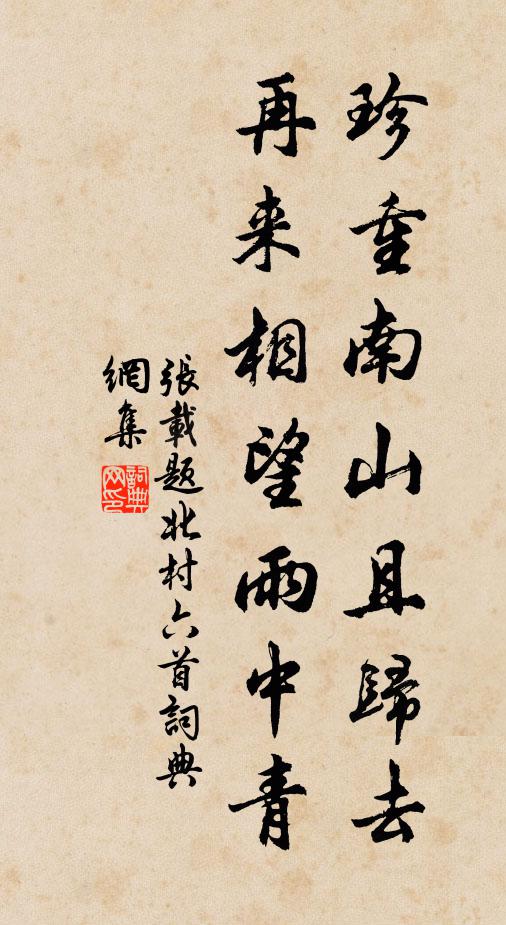 珍重南山且歸去
再来相望雨中青
張載题北村六首詞典
網集
詞典网印